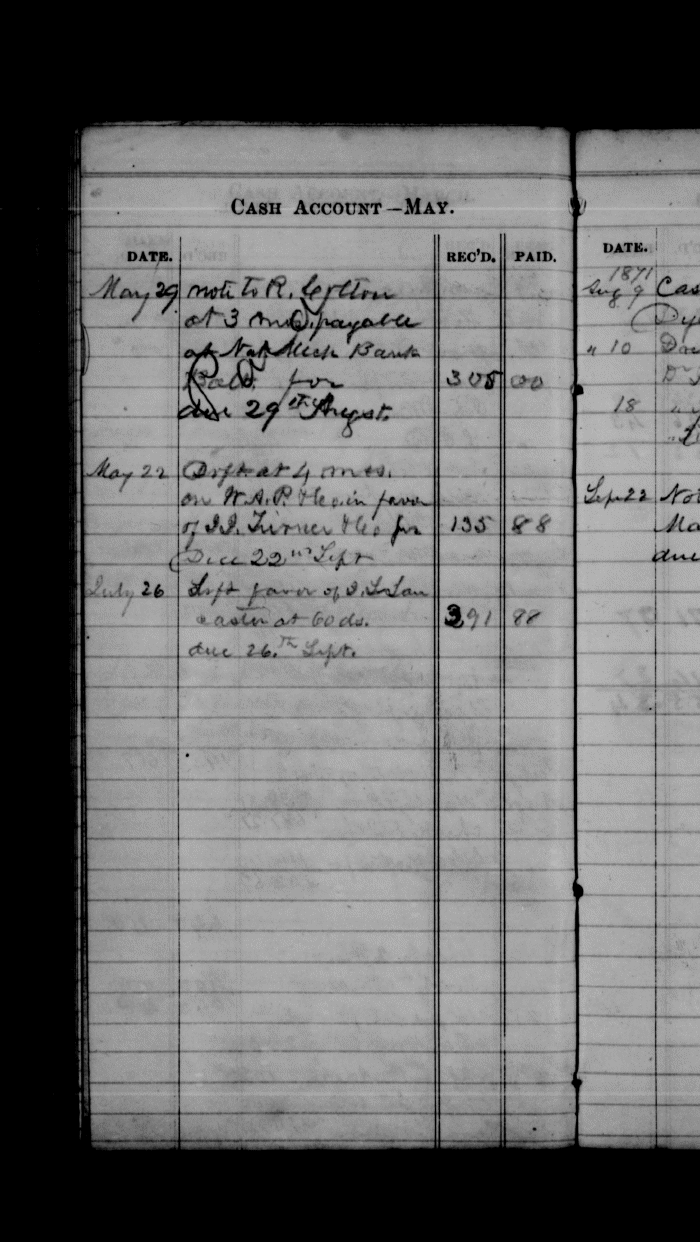 CASH ACCOUNT—MAY.
DATE. REC'D. PAID.
May 29 note to R. Colton
at 3 mos payable
at Nat Mech Bank
Balt. for 305 00
due 29th Augst.
May 22 Drft at 4 mos.
on W.A.P. & Co. in favor
of J.J. Turner & Co for 135 88
Due 22nd Sept
July 26 Drft favor of J. L. Lan
caster at 60 ds. 391 88
due 26.th Sept.
DATE.
1871
Aug 9 Cas
" 10
18
Sept 22 Not
Ma
due